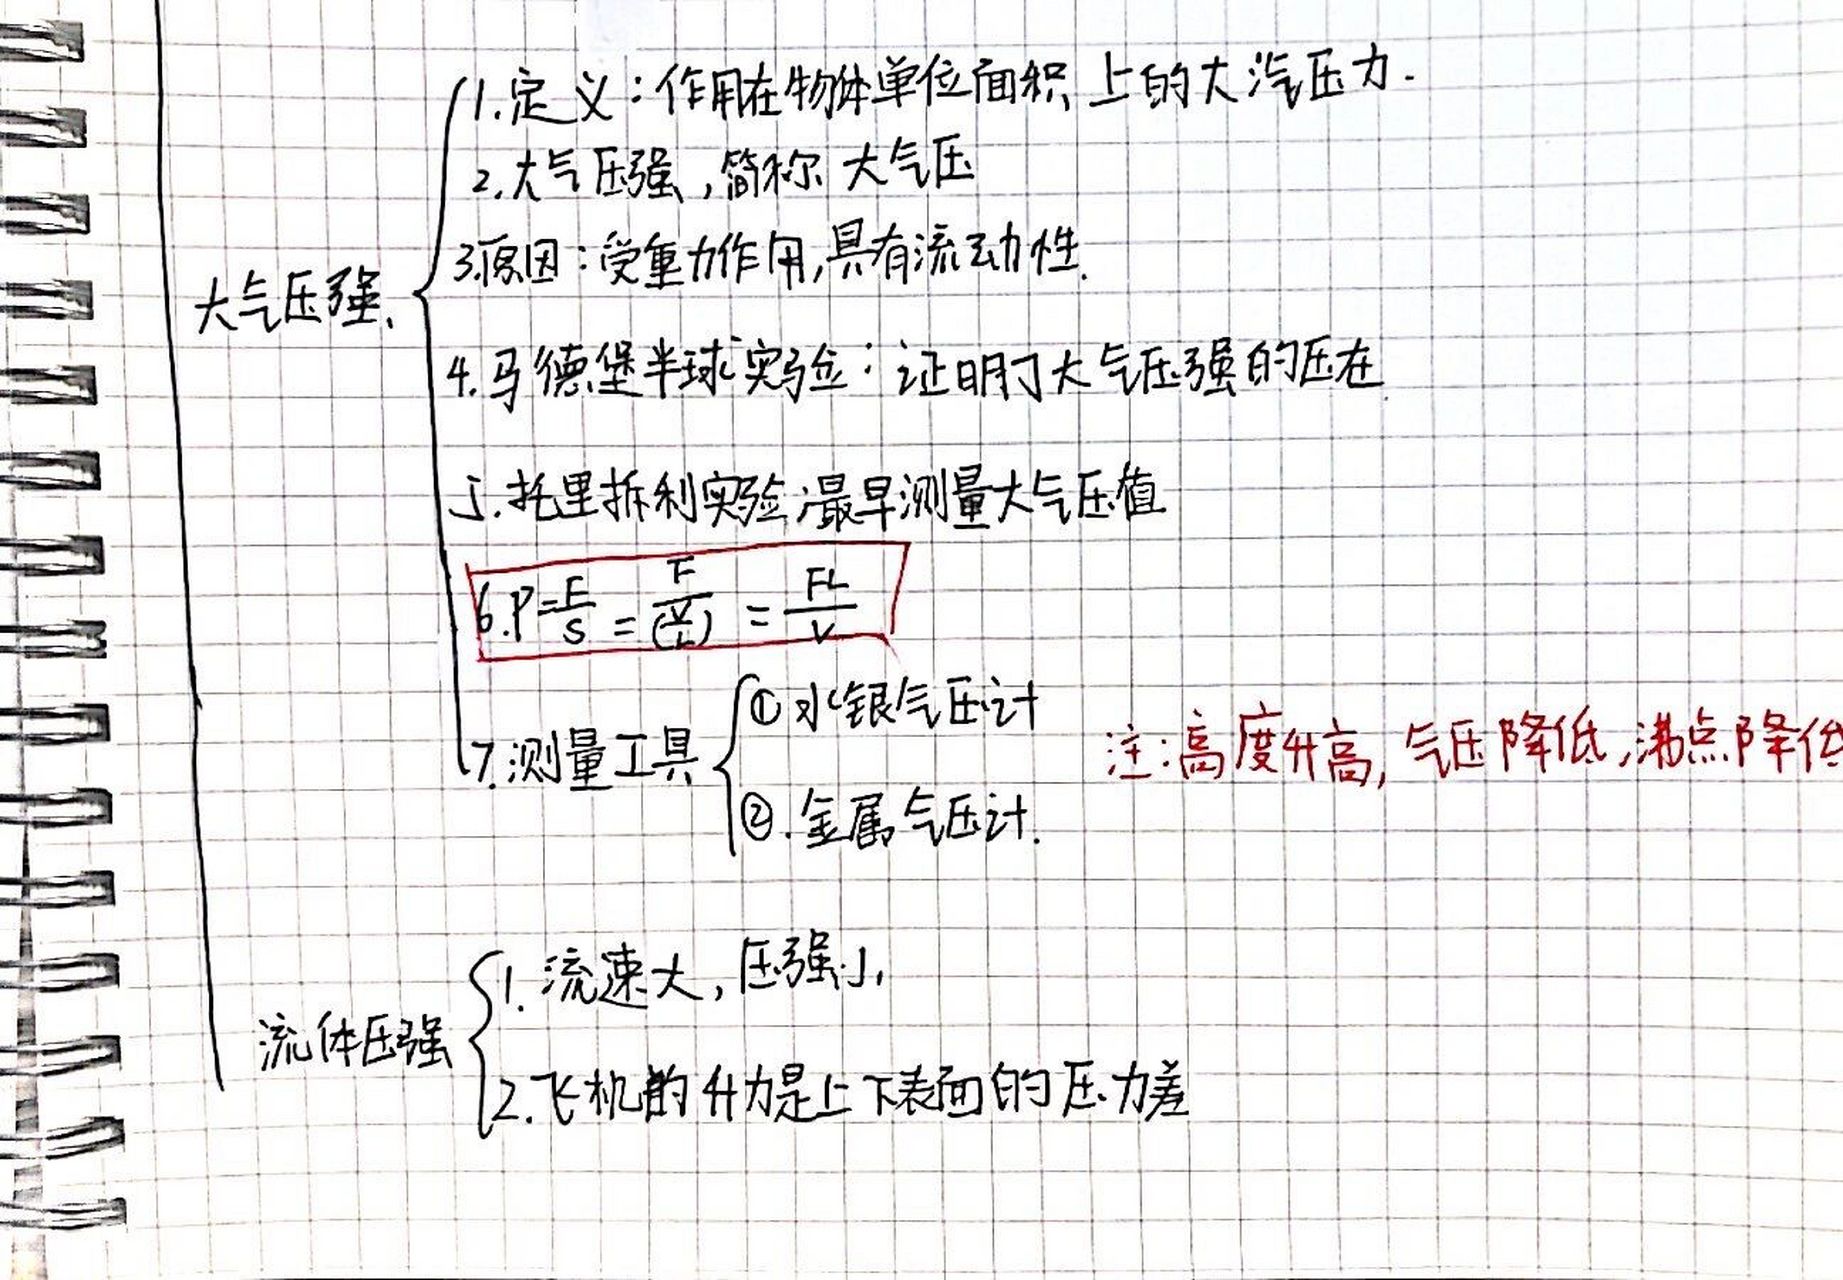 1.定义：作用在物体单位面积上的大汽压力.
2.大气压强，简称大气压
3.原因：受重力作用,具有流动性.
大气压强、
4.马德堡半球实验：证明了大气压强的压在
5.托里拆利实验:最早测量大气压值
6.P=F/S=F/(V/L)=FL/V
7.测量工具
①水银气压计
注:高度升高,气压降低,沸点降低
②.金属气压计.
1.流速大,压强小,
流体压强
2.飞机的升力是上下表面的压力差